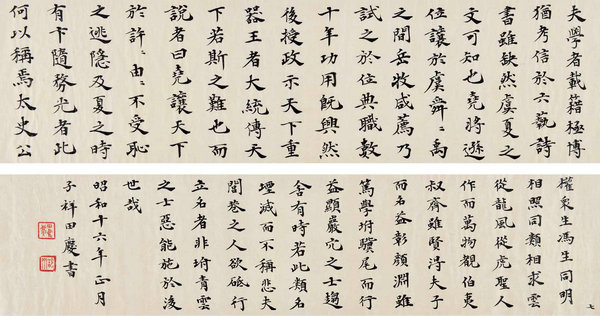 夫學者載籍極博
猶考信於六藝詩
書雖缺然虞夏之
文可知也堯將遜
位讓於虞舜〻禹
之間岳牧咸薦乃
試之於位典職數
十年功用既興然
後授政示天下重
器王者大統傳天
下若斯之難也而
說者曰堯讓天下
於許〻由〻不受恥
之逃隱及夏之時
有卞隨務光者此
何以稱焉太史公
權衆生馮生同明
相照同類相求雲
從龍風從虎聖人
作而萬物覩伯夷
叔齊雖賢得夫子
而名益彰顏淵雖
篤學坿驥尾而行
益顯巖穴之士趨
舍有時若此類名
堙滅而不稱悲夫
閭巷之人欲砥行
立名者非坿青雲
之士惡能施於後
世哉
昭和十六年正月
子祥田慶書
七